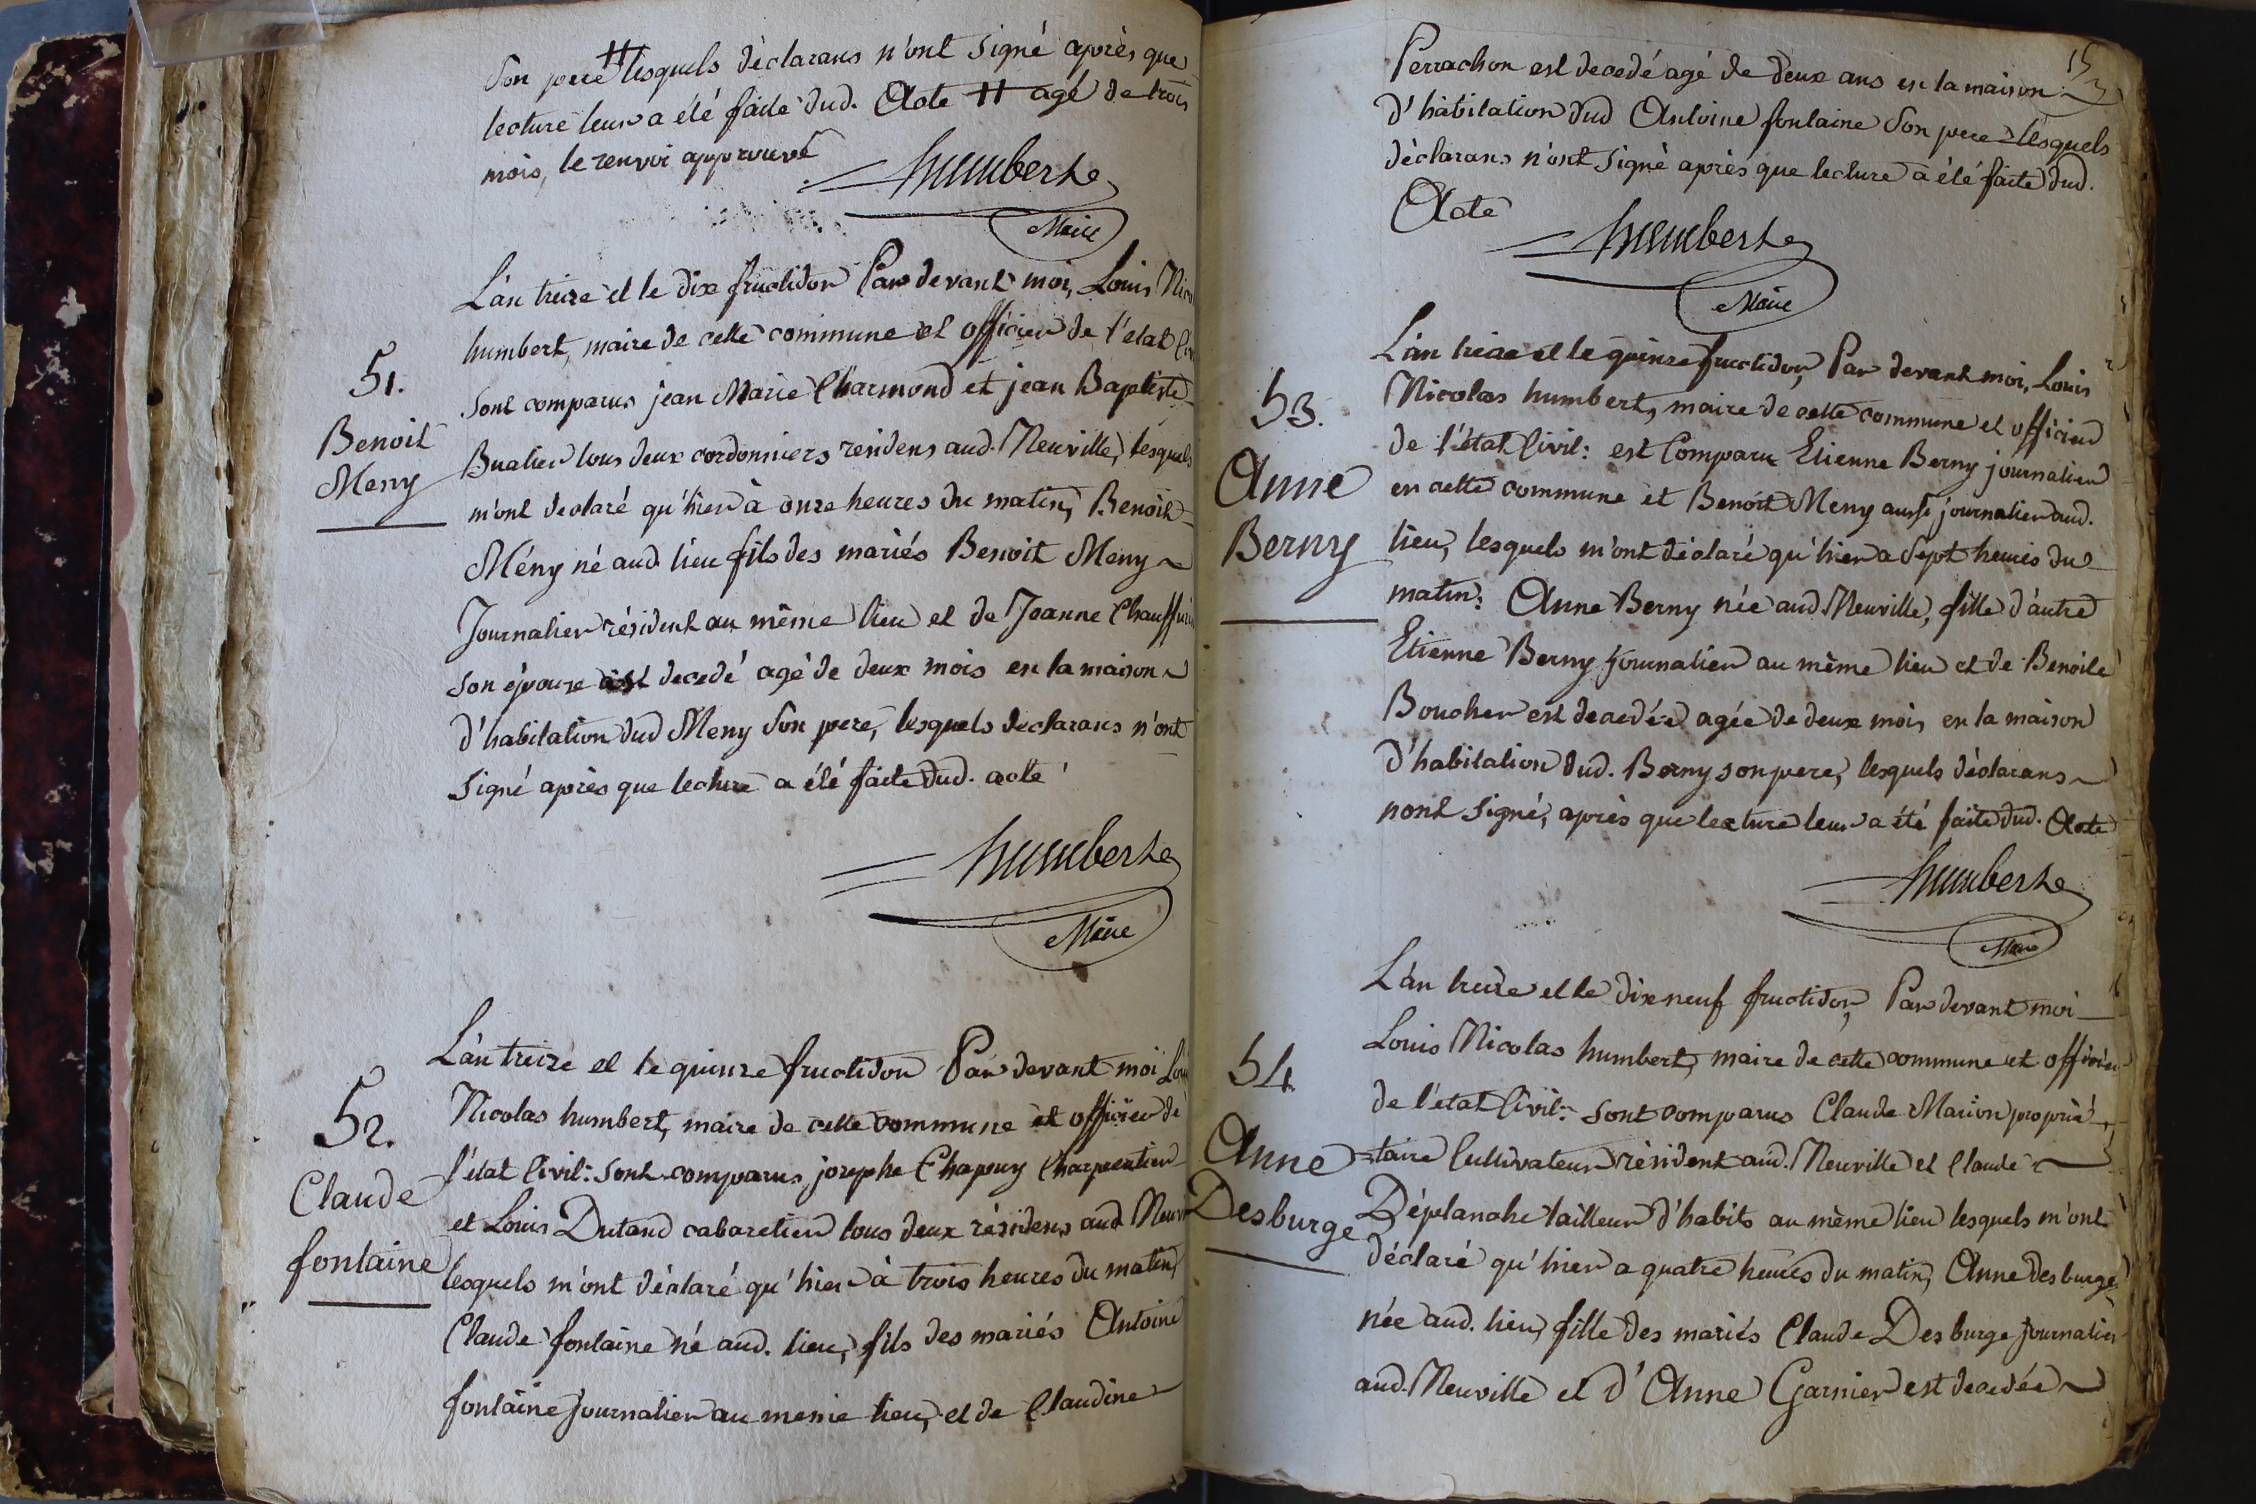 son pere # lesquels déclarans n'ont signé après que
lecture leur a été faite dud. Acte # agé de trois
mois, le renvoi approuvé
humbert
Maire
L'an treize et le dix fructidor Par devant moi, Louis Nico
humbert, maire de cette commune et officier de l'etat Civ
51.
Benoit
Meny
sont comparus jean Marie Charmond et jean Baptiste
Bualier tous deux cordonniers residens aud. Neuville, lesquels
m'ont declaré qu'hier à onze heures du matin, Benoit
Mény né aud. lieu fils des mariés Benoit Meny
Journalier résident au même lieu et de Jeanne
son épouse est decedé agé de deux mois en la maison
d'habitation dud Meny son pere, lesquels declarans n'ont
signé après que lecture a été faite dud. acte
humbert
Maire
L'an treize et le quinze fructidor Par devant moi Loui
52.
Claude
fontaine
Nicolas humbert, maire de cette commune et officier de
l'état Civil: sont comparus josephe Chapuy Charpentier
et Louis Dutand cabaretier tous deux résidens aud Neuvi
lesquels m'ont déclaré qu'hier à trois heures du matin,
Claude fontaine né aud. lieu, fils des mariés Antoine
fontaine Journalier au meme lieu, et de Claudine
15
Perrachon est decedé agé de deux ans en la maison
d'habitation dud Antoine fontaine son pere lesquels
déclarans n'ont signé après que lecture a été faite dud.
Acte
humbert
Maire
L'an treize et le quinze fructidor, Par devant moi, Louis
53.
Anne
Berny
Nicolas humbert, maire de cette commune et officier
de l'état Civil: est Comparu Etienne Berny journalier
en cette commune et Benoit Meny aussi journalier aud.
lieu, lesquels m'ont déclaré qu'hier a sept heures du
matin: Anne Berny née aud Neuville, fille d'autre
Etienne Berny journalier au même lieu et de Benoite
Boucher est decedée agée de deux mois en la maison
d'habitation dud. Berny son pere, lesquels déclarans
nont signé, après que lecture leur a été faite dud. Acte
humbert
Maire
L'an treize et le dix neuf fructidor, Par devant moi
54
Anne
Desburge
Louis Nicolas humbert, maire de cette commune et officier
de l'état Civil: sont comparus Claude Marion proprié-
-taire Cultivateur résident aud. Neuville et Claude
Déplanche tailleur d'habits au même lieu lesquels m'ont
déclaré qu'hier a quatre heures du matin, Anne Desburge
née aud. lieu, fille des mariés Claude Desburge journalier
aud. Neuville et d'Anne Garnier est decedée